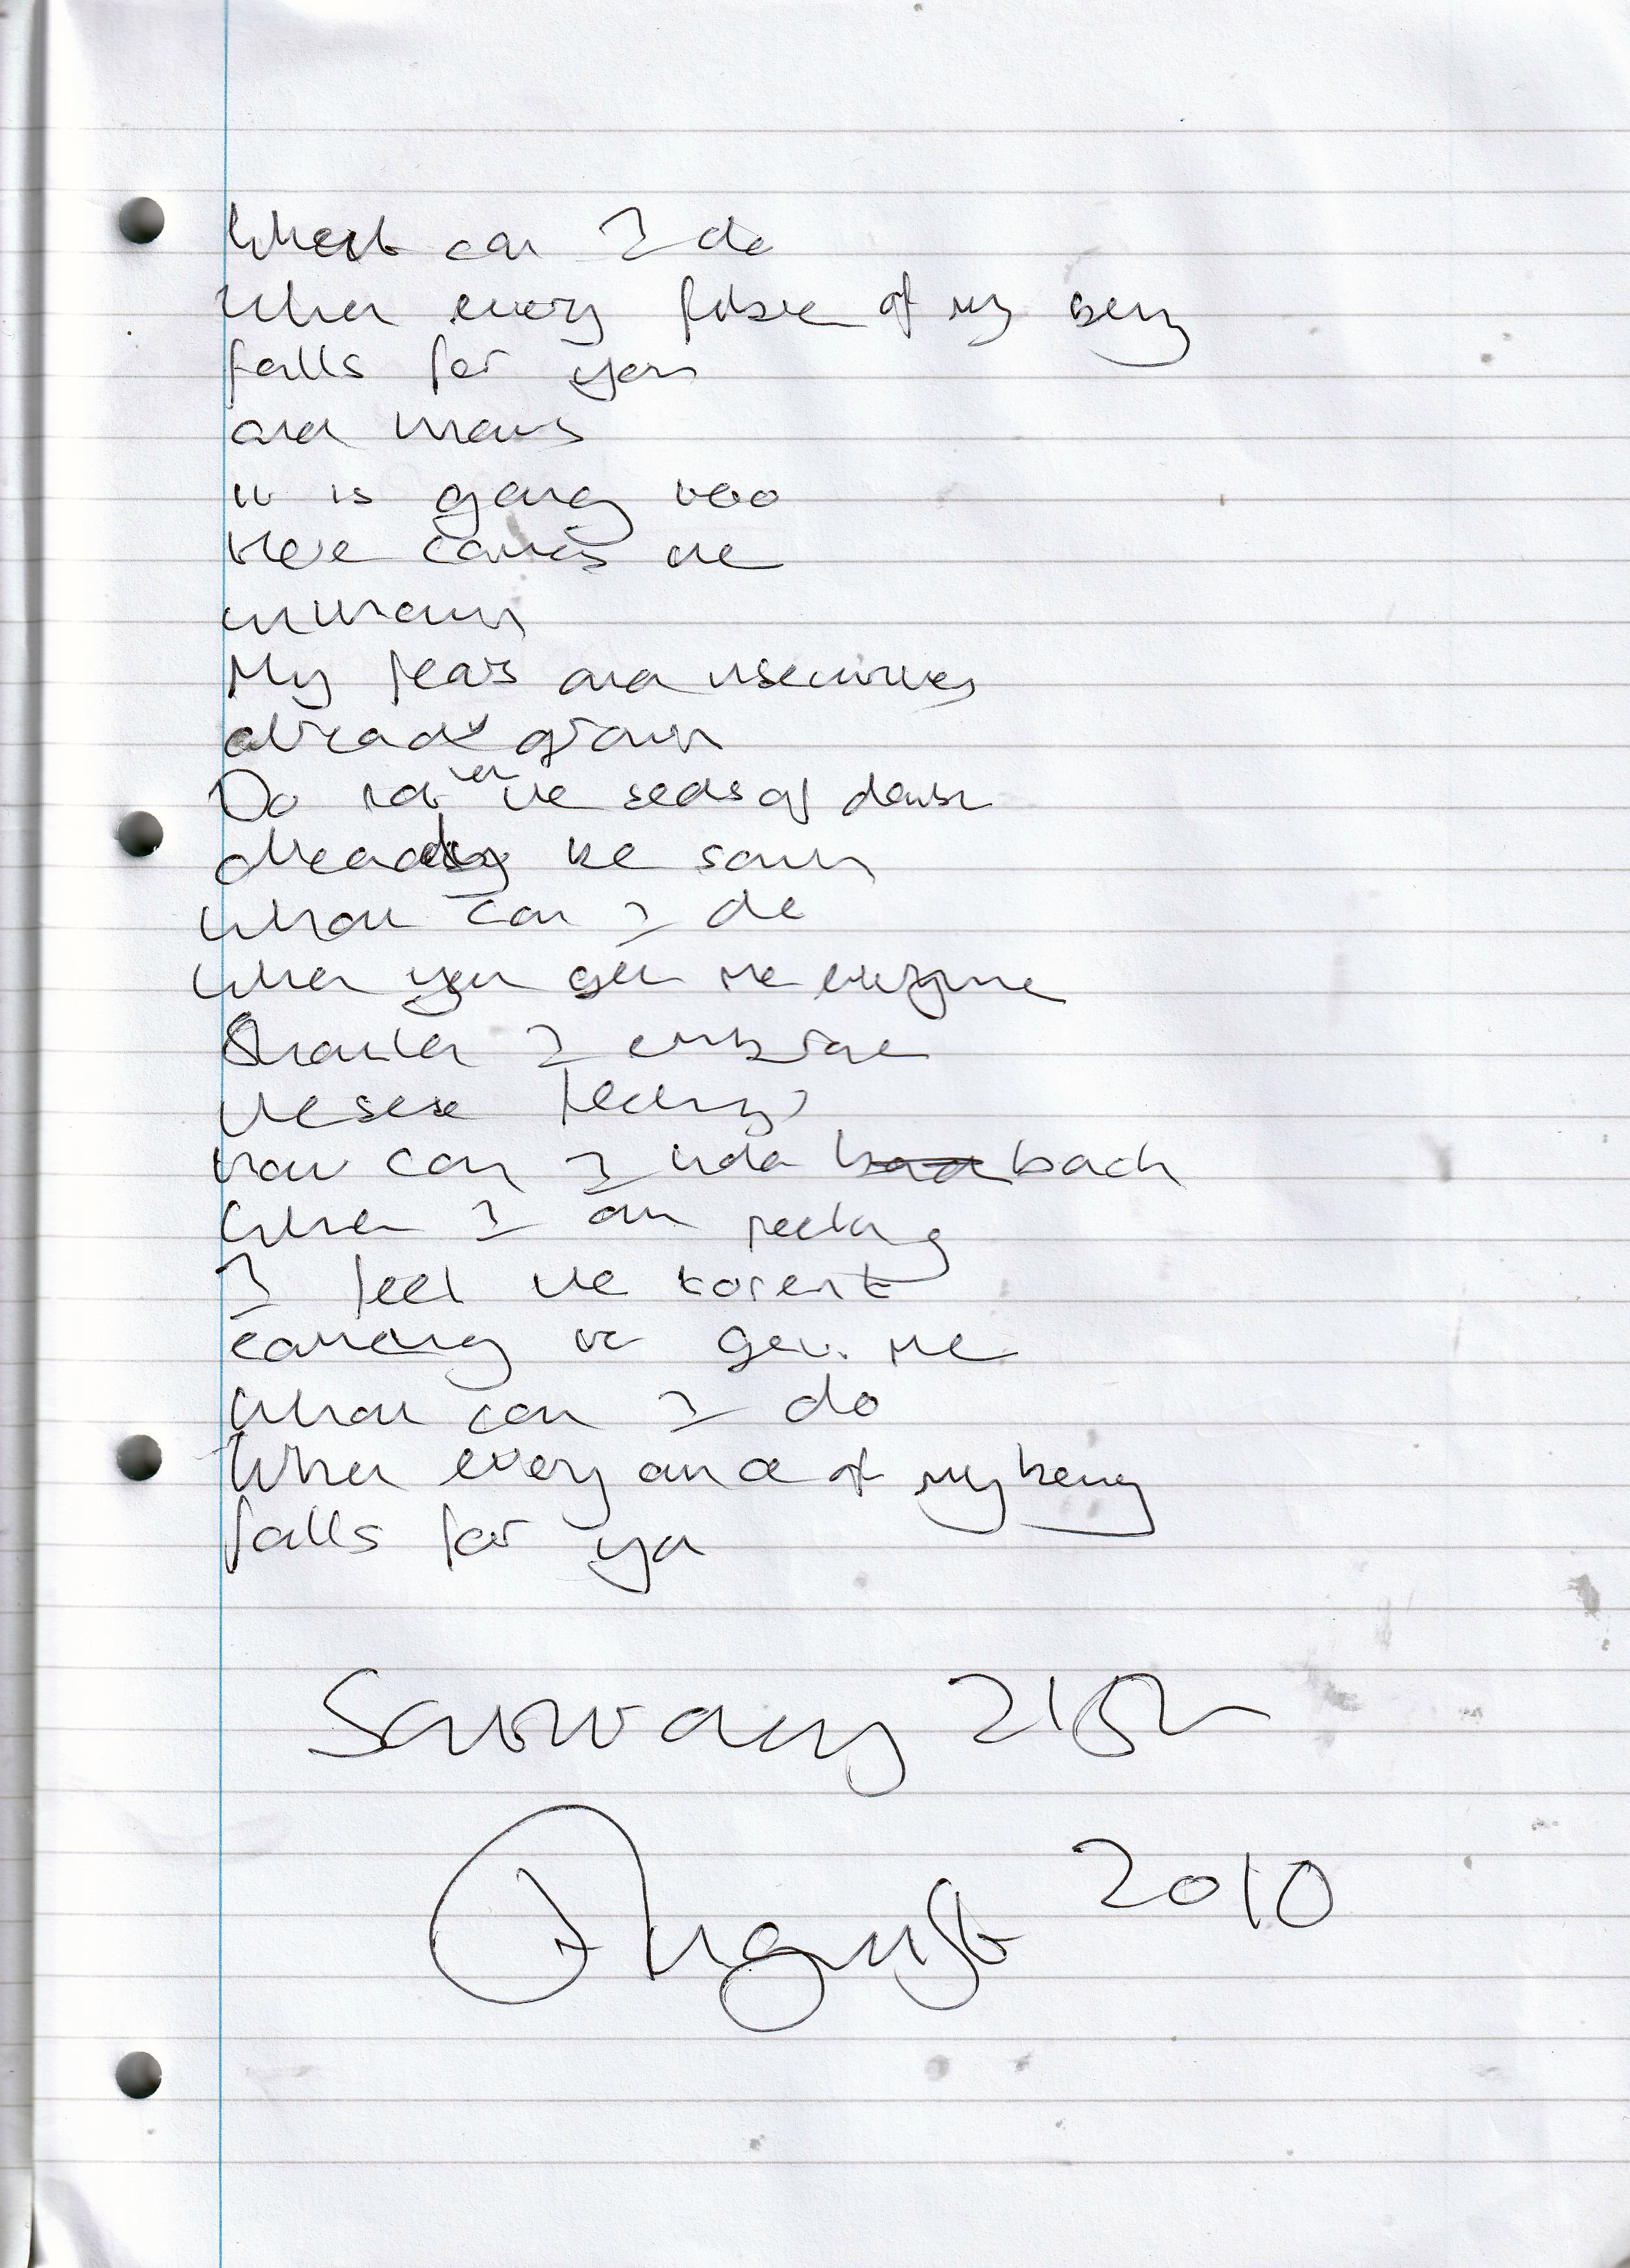 What can I do
when every fibre of my being
falls for you
and thinks
it is going too
Here comes the
unknown
My fears and insecurities
already grown
Do not let the seeds of doubt
already be sown
What can I do
When you get me everytime
Should I embrace
these feelings
how can I hold back
When I am feeling
I feel the torent
coming to get me
What can I do
When every ounce of my being
falls for you
Saturday 21st
August 2010